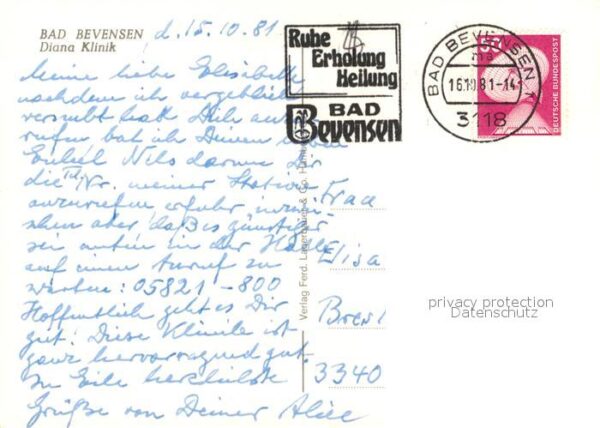 BAD BEVENSEN
Diana Klinik
d. 15.10.81
Meine liebe Elisabeth
nachdem ich vergeblich
versucht hab Dich anzu
rufen bat ich Deinen
Enkel Nils darum Dir
die Tel Nr. meiner Station
anzurufen erfuhr inzwi-
schen aber daß es günstiger
sei unten in der Halle
auf einen Anruf zu
warten: 05821-800
Hoffentlich geht es Dir
gut! Diese Klinik ist
ganz hervorragend gut.
In Eile herzlichste
Grüße von Deiner Alice
Verlag Ferd. Lagerbauer & Co.
Ruhe
Erholung
Heilung
BAD
Bevensen
BAD BEVENSEN 1
ma
16.10.81-14
3118
50
DEUTSCHE BUNDESPOST
Frau
Elisa
Bresl
3340
privacy protection
Datenschutz